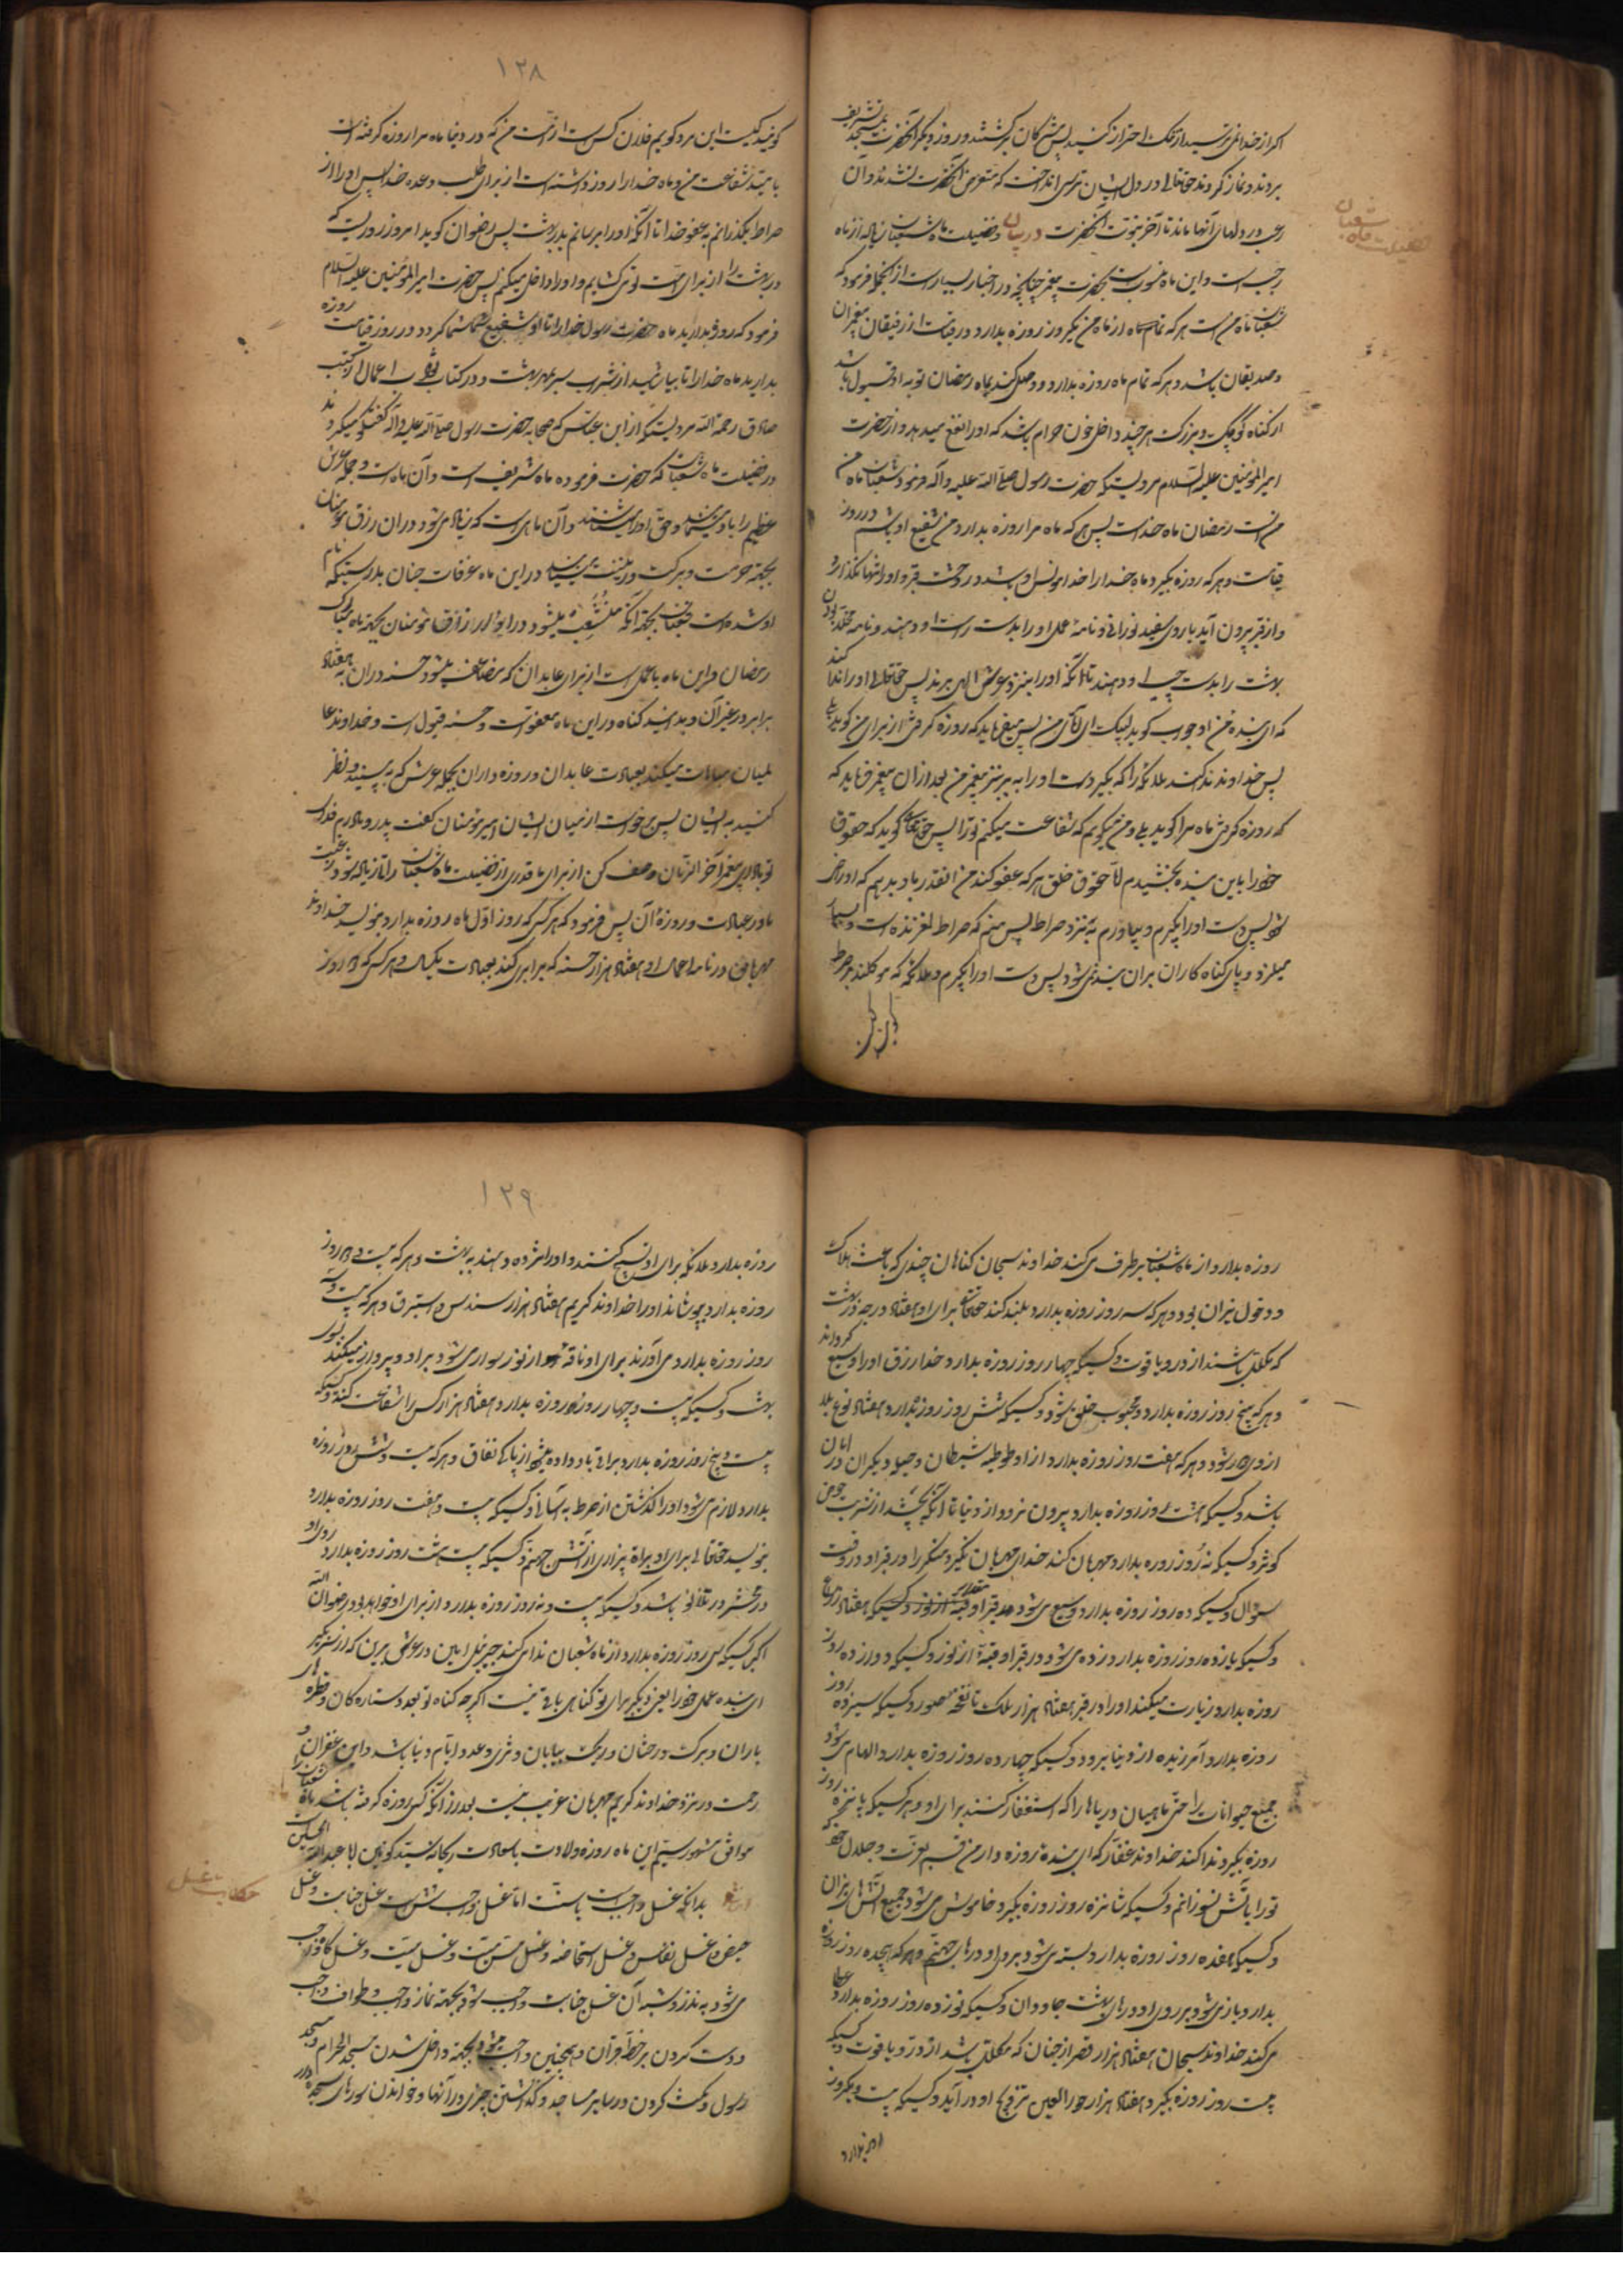 اگر از خدا نمی ترسید از ملک احتراز کنید پس مشرکان برگشتند و روز دیگر آنحضرت بمسجد تشریف
بردند و نماز کردند حقتعالی در دل ایشان ترسی انداخت که متعرض آنحضرت نشدند و آن
رعب در دلهای آنها ماند تا آخر نبوت آنحضرت در بیان فضیلت ماه شعبان
فضیلت ماه شعبان
رجب است و این ماه منسوب است بحضرت پیغمبر چنانچه در اخبار بسیار است از آنجمله فرمود که
شعبان ماه من است هر که از ماه من یکروز روزه بدارد در قیامت از رفیقان پیغمبران
و صدیقان باشد و هر که تمام ماه روزه بدارد و وصل کند بماه رمضان توبه او قبول باشد
از گناه کوچک و بزرگ هر چند داخل خون حرام باشد که او را نفع میدهد و از حضرت
امیرالمؤمنین علیه السلام مرویستکه حضرت رسول صلی الله علیه و آله فرمود شعبان ماه من
است رمضان ماه خداست پس هر که ماه مرا روزه بدارد من شفیع او باشم در روز
قیامت و هر که روزه بگیرد ماه خدا را خدا مونس او باشد در وحشت قبر و او را تنها نگذارد
و از قبر بیرون آید با روی سفید نورانی و نامه عمل او را بدست راست او دهند و نامه مخلد بودن
بهشت را بدست چپ او دهند تا آنکه او را بنزد عرش الهی برند پس حقتعالی او را ندا کند
که ای بنده من او جواب گوید لبیک ای آقای من پس میفرماید که روزه گرفتی از برای من گوید بلی
پس خداوند ندا کند ملائکه را که بگیر دست او را به بر نزد پیغمبر من بعد از آن پیغمبر فرماید که
که روزه گرفتی ماه مرا گوید بلی و من میگویم که شفاعت میکنم تو را پس حقتعالی گوید که حقوق
خود را باین بنده بخشیدم اما حقوق خلق هر که عفو کند من آنقدر باو بدهم که او راضی
شود پس دست او را بگیرم و بیاورم به نزد صراط پس بینم که صراط لغزنده است و بسیار
میلرزد و پای گناه کاران بران بند نمی شود پس دست او را بگیرم و ملائکه که موکلند بر صراط
۱۲۸
گویند کیست این مرد گویم فلان کس است از امت من که در دنیا ماه مرا روزه گرفته است
بامید شفاعت من و ماه خدا را روزه داشته است از برای طلب وعده خدا پس او را از
صراط بگذرانم به عفو خدا تا آنکه او را برسانم بدر بهشت پس رضوان گوید امروز روزیست که
در بهشت را از برای امت تو می کشایم و او را داخل میکنم پس حضرت امیرالمؤمنین علیه السلام
فرمود که روزه بدارید ماه حضرت رسول خدا را تا او شفیع شما گردد در روز قیامت روزه
بدارید ماه خدا را تا بیاشامید از شراب سر بمهر بهشت و در کتاب ثواب اعمال از کتب
صادق رحمه الله مرویستکه از ابن عباس که صحابه حضرت رسول صلی الله علیه و آله گفتگو میکردند
در فضیلت ماه شعبان که حضرت فرموده ماه شریف است و آن ماه است و حمله عرش
عظیم را و حق او را میشناسند و آن ماهی است که زیاد می شود دران رزق مؤمنان
بجهة حرمت و برکت و زینت در این ماه عرفات جنان بدرستیکه نام
او شده است شعبان بجهة آنکه منشعب میشود در او ارزاق مؤمنان بجهة ماه مبارک
رمضان و این ماه است از برای عابدان که مضاعف میشود حسنه دران به هفتاد
برابر در غیر آن و گناه در این ماه معفوست و حسنه قبول است و خداوند عا
لمیان مباهات میکند بعبادت عابدان و روزه داران بحمله عرش که به بینید و نظر
کنید به ایشان پس برخواست از میان ایشان امیر مؤمنان گفت پدر و مادرم فدای
تو باد ای پیغمبر آخر الزمان وصف کن از برای ما قدری از فضیلت ماه شعبان را تا زیاد شود رغبت
ما در عبادت و روزهٔ آن پس فرمود که هر کس که روز اول ماه روزه بدارد بنویسد خداوند
مهربان در نامه اعمال او هفتاد هزار حسنه که برابری کند بعبادت یکسال و هر کس که دو روز
روزه بدارد از ماه شعبان برطرف می کند خداوند سبحان گناهان چندی که باعث هلاک
و دخول نیران بود و هر که سه روز روزه بدارد بلند کند حقتعالی برای او هفتاد درجه در بهشت
که مکلل باشند از در و یاقوت و کسیکه چهار روز روزه بدارد خدا رزق او را وسیع گرداند
و هر که پنج روز روزه بدارد محبوب خلق شود و کسیکه شش روز روزه بدارد هفتاد نوع بلا
ازو دور شود و هر که هفت روز روزه بدارد از شیطان و حیله دیگران در امان
باشد و کسیکه هشت روز روزه بدارد بیرون نرود از دنیا تا آنکه بچشد از شربت حوض
کوثر و کسیکه نه روز روزه بدارد مهربان کند خدای مهربان نکیر و منکر را در قبر او در وقت
سؤال و کسیکه ده روز روزه بدارد وسیع می شود قبر او مقدار هفتاد زراع
و کسیکه یازده روز روزه بدارد زده می شود در قبر او قبهٔ از نور و کسیکه دوازده روز
روزه بدارد زیارت میکنند او را در قبر هفتاد هزار ملک تا نفخه صور و کسیکه سیزده روز
روزه بدارد آمرزیده از دنیا برود و کسیکه چهارده روز روزه بدارد الهام می شود
جمیع حیوانات را حتی ماهیان دریاها را که استغفار کنند برای او و هر کسیکه پانزده روز
روزه بگیرد ندا کند خداوند غفار که ای بنده روزه دار من قسم بعزت و جلال خود که
تو را بآتش نسوزانم و کسیکه شانزده روز روزه بگیرد خاموش می شود جمیع آتشهای نیران
و کسیکه هفده روز روزه بدارد بسته می شود بر او درهای جهنم و هر که هیجده روز روزه
بدارد باز می شود بر روی او درهای بهشت جاودان و کسیکه نوزده روز روزه بدارد عطا
می کند خداوند سبحان هفتاد هزار قصر از جنان که مکلل باشد از در و یاقوت و کسیکه
بیست روز روزه بگیرد هفتاد هزار حورالعین تزویج او در آید و کسیکه بیست و یکروز
۱۲۹
روزه بدارد ملائکه برای او تسبیح کنند و او را مژده دهند به بهشت و هر که بیست و دو روز
روزه بدارد بپوشاند او را خداوند کریم هفتاد هزار سندس و استبرق و هر که بیست و سه
روز روزه بدارد می آورند برای او ناقه از نور سواری شود بر او و پرواز میکند بسوی
بهشت و کسیکه بیست و چهار روز روزه بدارد هفتاد هزار کس را شفاعت کند و کسیکه
بیست و پنج روز روزه بدارد براتی باو داده میشود از نفاق و هر که بیست و شش روز روزه
بدارد لازم می شود او را گذشتن از صراط به آسانی و کسیکه بیست و هفت روز روزه بدارد
بنویسد حقتعالی برای او براة بیزاری از آتش جهنم و کسیکه بیست هشت روز روزه بدارد روی او
در محشر درخشان باشد و کسیکه بیست و نه روز روزه بدارد از برای او خواهد بود رضوان الله
اکبر و کسیکه سی روز روزه بدارد از ماه شعبان ندا می کند جبرئیل امین در عرش برین که از سر بگیر
ای بنده عمل خود را یعنی دیگر برای تو گناهی باقی نیست اگر چه گناه تو بعدد ستاره گان و قطره های
باران و برگ درختان و ریگ بیابان و ثری و عدد ایام دنیا باشد و این غفران و
رحمت در نزد خداوند کریم مهربان غریب نیست بعد از آنکه کسی روزه گرفته باشد ماه شعبان را
موافق مشهور سیم این ماه روزه ولادت با سعادت ریحانه سید کونین ابا عبدالله الحسین
بدانکه غسل واجب است یا سنت اما غسل واجب شش است غسل جنابت و غسل
حکایت غسل
حیض و غسل نفاس و غسل استحاضه و غسل مس میت و غسل میت و غسل گاه واجب
می شود به نذر و شبه آن غسل جنابت واجب شود بجهة نماز واجب و طواف واجب
و دست کردن بر خط قرآن و همچنین واجب میشود بجهة داخل شدن مسجد الحرام و مسجد
رسول و مکث کردن در سایر مساجد و گذاشتن چیزی در آنها و خواندن سورهای سجده دار